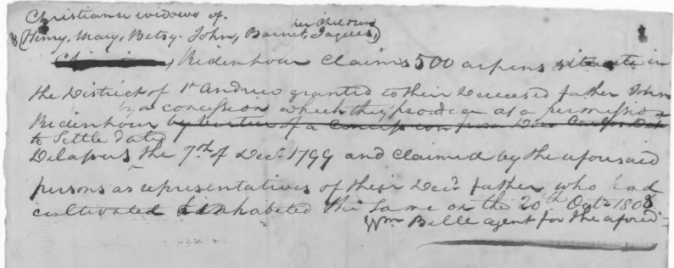 Christiana widow of
& Henry, Mary, Betsy, John, Barnet,
her children
Ridenhour Claims 500 arpens situate in
the District of St Andrew granted to their Deceased father John
by a concession which they produce as a permission
Ridenhour by virtue of a Concession from Don
to Settle dated
Delassus the 7th of Decr 1799 and claimed by the aforesaid
persons as representatives of their Decd father who had
cultivated & inhabited the same on the 20th Octr 1803
Wm Belle agent for the afored